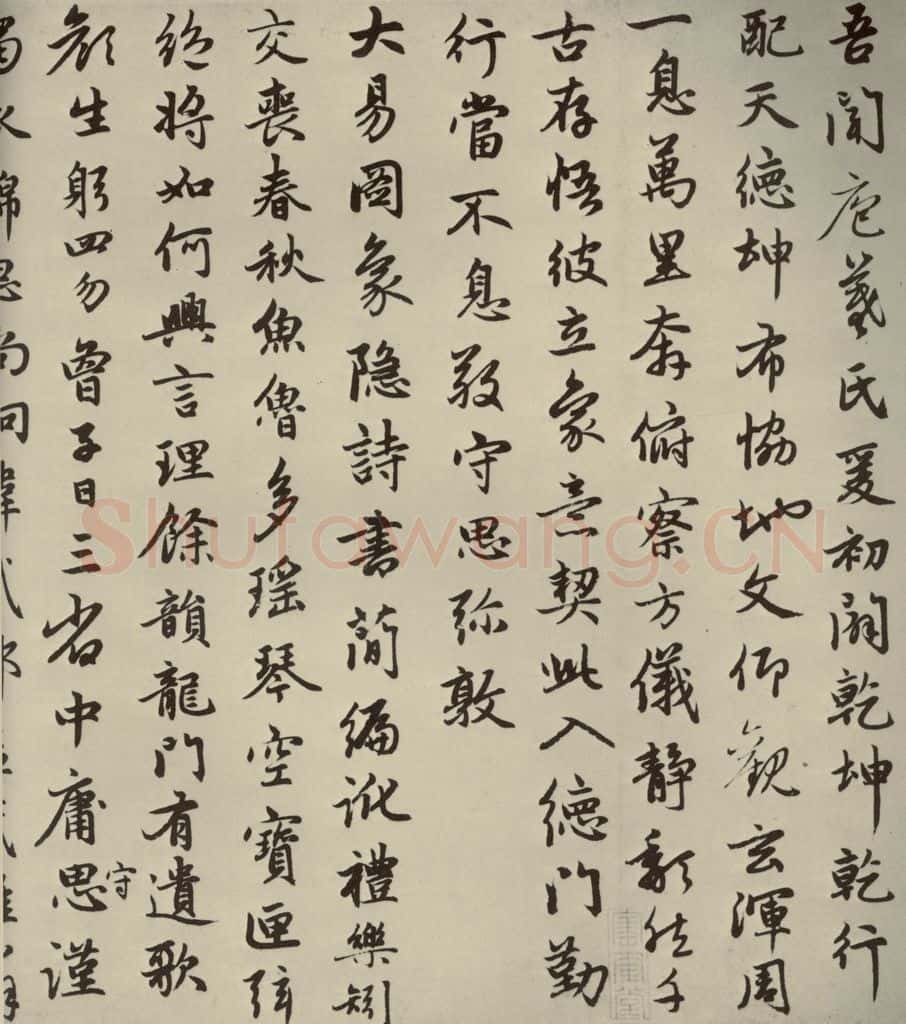 吾聞庖羲氏爰初闢乾坤乾行
配天德坤布協地文仰觀玄渾周
一息萬里奔俯察方儀靜頹然千
古存悟彼立象意契此入德門勤
行當不息敬守思弥敦
大易圖象隐詩書簡編訛禮樂矧
交喪春秋魚魯多瑶琴空寶匣弦
絶將如何興言理餘韻龍門有遺歌
顔生躬四勿曾子日三省中庸思謹
守
Shufawang.CN